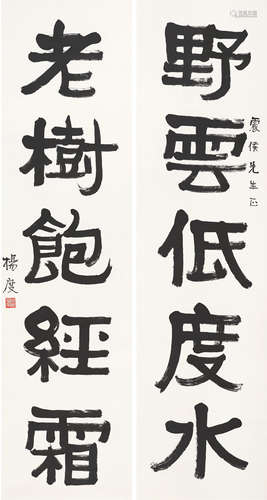 野雲低度水
震侯先生正
老樹飽經霜
楊度